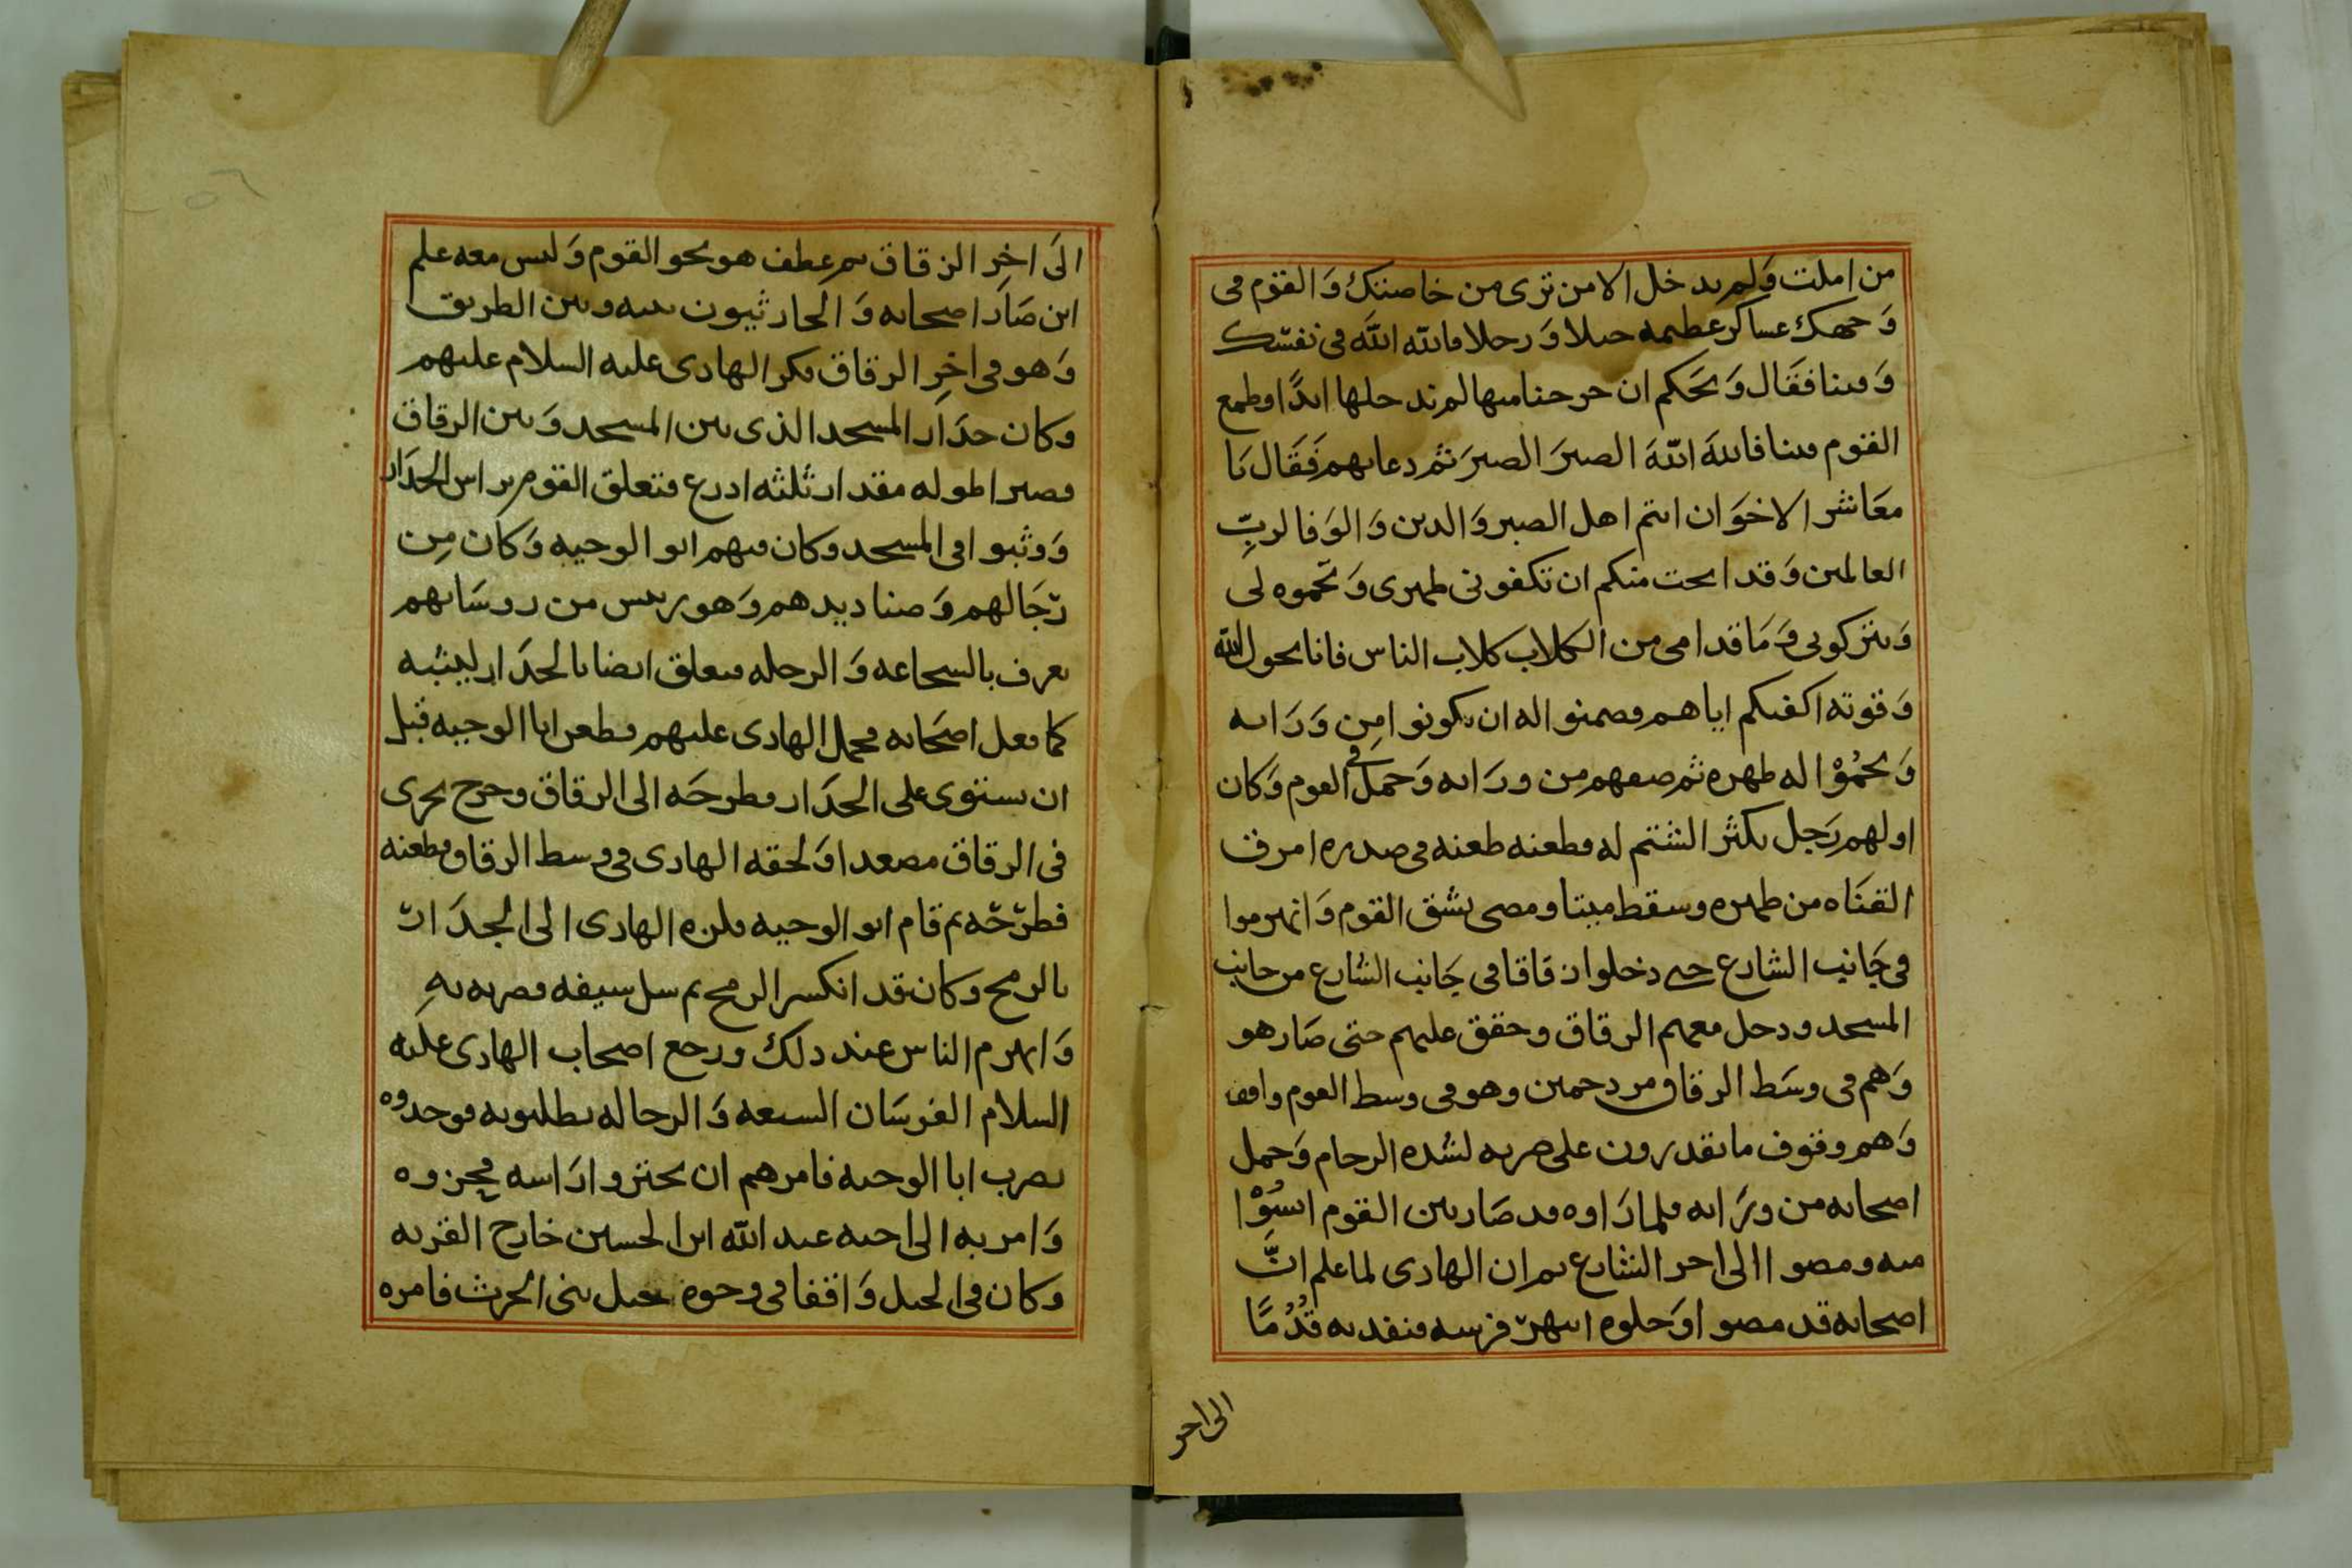 من املت وَلم يدخل الا من ترى من خاصتك وَالقوم فى
وَجهك عساكر عظيمه خيلا وَرجلا فالله اللهَ فى نفسك
وَفينا فقَال وَيحَكم ان خرجنا منها لم ندخلها ابدًا وطمع
القوم فينا فاللهَ اللهَ الصبرَ الصبرَ ثم دعا بهم فَقَال يَا
معَاشر الاخوَان انتم اهل الصبر وَالدين وَالوَفا لربِّ
العالمين وَقد احببت منكم ان تكفونى ظهرى وَتحموه لى
وَتتركونى وَمَا قدامى من الكلاب كلاب الناس فانا بحول الله
وَقوته اكفيكم اياهم فضمنوا له ان يكونوا مِن وَرَائه
وَيحمُوْا له ظهره ثم صفهم من ورَائه وَحمَل فى القوم وَكان
اولهم رَجل يكثر الشتم له فطعنه طعنه فى صدره امرق
القنَاه من ظهره وسقط ميتا ومضى يشق القوم وَانهزموا
فى جَانب الشارع حتى دخلوا زقاقا فى جَانب الشارع من جانب
المسجد ودخل معهم الزقاق وحقق عليهم حتى صَار هو
وَهم فى وسَط الزقاق مزدحمين وهو فى وسط القوم واقف
وَهم وقوف ما يقدرون على ضربه لشده الزحام وَحمل
اصحابه من ورَائه فلما رَاوه قد صَار بين القوم ايسُوْا
منه ومضوا الى اخر الشارع ثم ان الهادى لما علم انَّ
اصحابه قد مضوا وَخلوه انتهرَ فرسه فنفد به قُدُمًا
الى اخر
الَى اخِر الزقاق ثم عطف هو نحو القوم وَليس معه علم
اين صَارَ اصحابه وَالحارثيون بينه وبين الطريق
وَهو فى اخِر الزقاق فكر الهادى عليه السلام عليهم
وكان جدَار المسجد الذى بين المسجد وَبين الزقاق
قصيرا طوله مقدار ثلثه اذرع فتعلق القوم براس الجدَار
وَوثبوا فى المسجد وكان فيهم ابو الوجيه وَكان مِن
رجَالهم وَصناديدهم وَهو رييس من روسَائهم
يعرف بالشجاعه وَالرجله فتعلق ايضا بالجدَار ليثبه
كما فعل اصحَابه فحمل الهادى عليهم فطعن ابا الوجيه قبل
ان يستوى على الجدَار فطرحَه الى الزقاق وخرج يجرى
فى الزقاق مصعدا وَلحقه الهادى فى وسط الزقاق فطعنه
فطرَحَه ثم قام ابو الوجيه فلزه الهادى الى الجدَار
بالرمح وكان قد انكسر الرمح ثم سل سيفه فضربه بهِ
وَانهزم الناس عند ذلك ورجع اصحاب الهادى علَيه
السلام الفرسَان السبعه وَالرجاله يطلبونه فوجدوه
يضرب ابا الوجيه فامرهم ان يحتزوا رَاسه فجزوه
وَامر به الى اخيه عبد الله ابن الحسين خارج القريه
وكان فى الخيل وَاقفا فى وجوه خيل بنى الحرث فامره